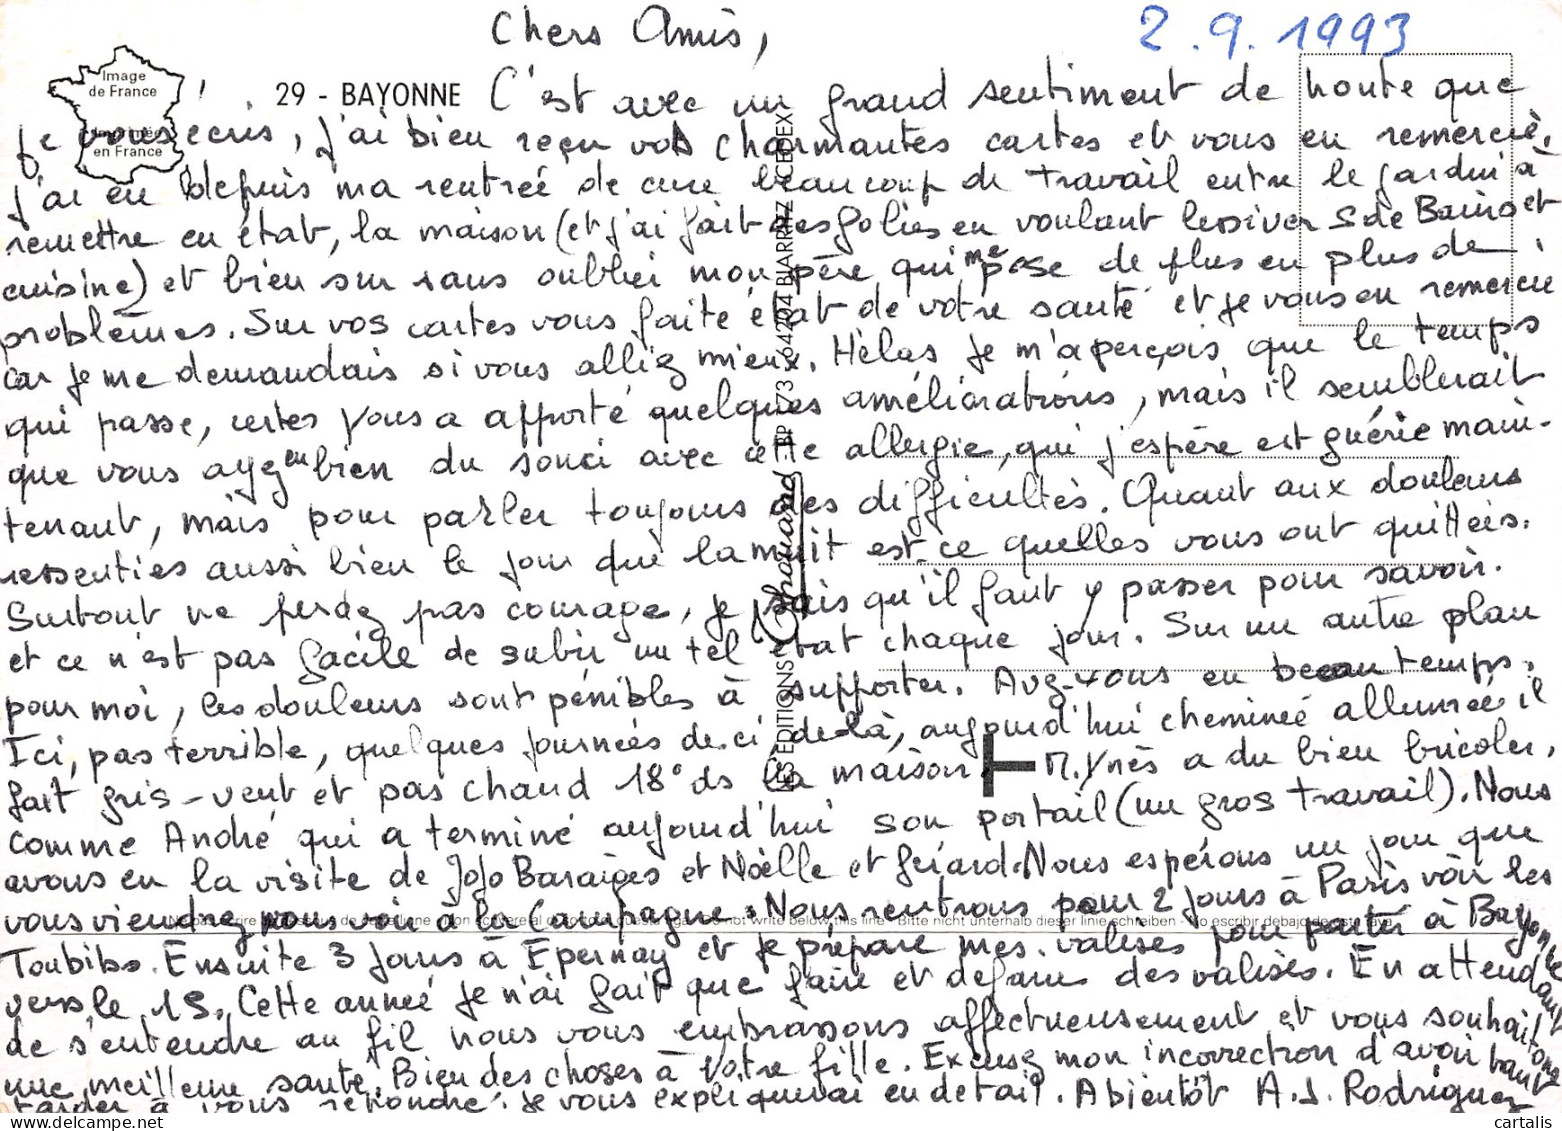 Chers Amis,
2.9.1993
Image
de France
Imprimée
en France
29 - BAYONNE
C'est avec un grand sentiment de honte que
je vous ecris, j'ai bien reçu vos charmantes cartes et vous en remercie.
J'ai eu depuis ma rentreé de cure beaucoup de travail entre le jardin à
remettre en état, la maison (et j'ai fait des folies en voulant lessiver S de Bains et
cuisine) et bien sur sans oublier mon père qui me pose de plus en plus de
problèmes. Sur vos cartes vous faite état de votre santé et je vous en remercie
car je me demandais si vous alliez mieux. Hèlas je m'aperçois que le temps
qui passe, certes vous a apporté quelques améliorations, mais il semblerait
que vous ayez eu bien du souci avec cette allergie, qui j'espère est guérie main-
tenant, mais pour parler toujours des difficultès. Quant aux douleurs
ressenties aussi bien le jour que la nuit est-ce quelles vous ont quitteès.
Surtout ne perdez pas courage, je sais qu'il faut y passer pour savoir.
et ce n'est pas facile de subir un tel état chaque jour. Sur un autre plan
pour moi, les douleurs sont pénibles à supporter. Avez-vous eu beau temps.
Ici, pas terrible, quelques journeés de ci de là, aujourd'hui chemineé allumeé il
fait gris - vent et pas chaud 18° ds la maison. M. Ynès a du bien bricoler,
comme André qui a terminé aujourd'hui son portail (un gros travail). Nous
avons eu la visite de Jojo Baraigès et Noëlle et Gérard. Nous espérons un jour que
vous viendrez nous voir à la Campagne. Nous rentrons pour 2 jours à Paris voir les
Toubibs. Ensuite 3 jours à Epernay et je prépare mes valises pour partir à Bayonne
vers le 15. Cette anneé je n'ai fait que faire et defaire des valises. En attendant
de s'entendre au fil nous vous embrassons affectueusement et vous souhaitons
une meilleure santé. Bien des choses à votre fille. Excusez mon incorrection d'avoir tant
tarder à vous répondre. Je vous expliquerai en detail. A bientôt A.J. Rodriguez
LES EDITIONS Chouard BP 173 64204 BIARRITZ CEDEX
Ne pas écrire au-dessous de cette ligne - Non scrivere al disotto di questa riga - Do not write below this line - Bitte nicht unterhalb dieser linie schreiben - No escribir debajo de esta linea
cartalis